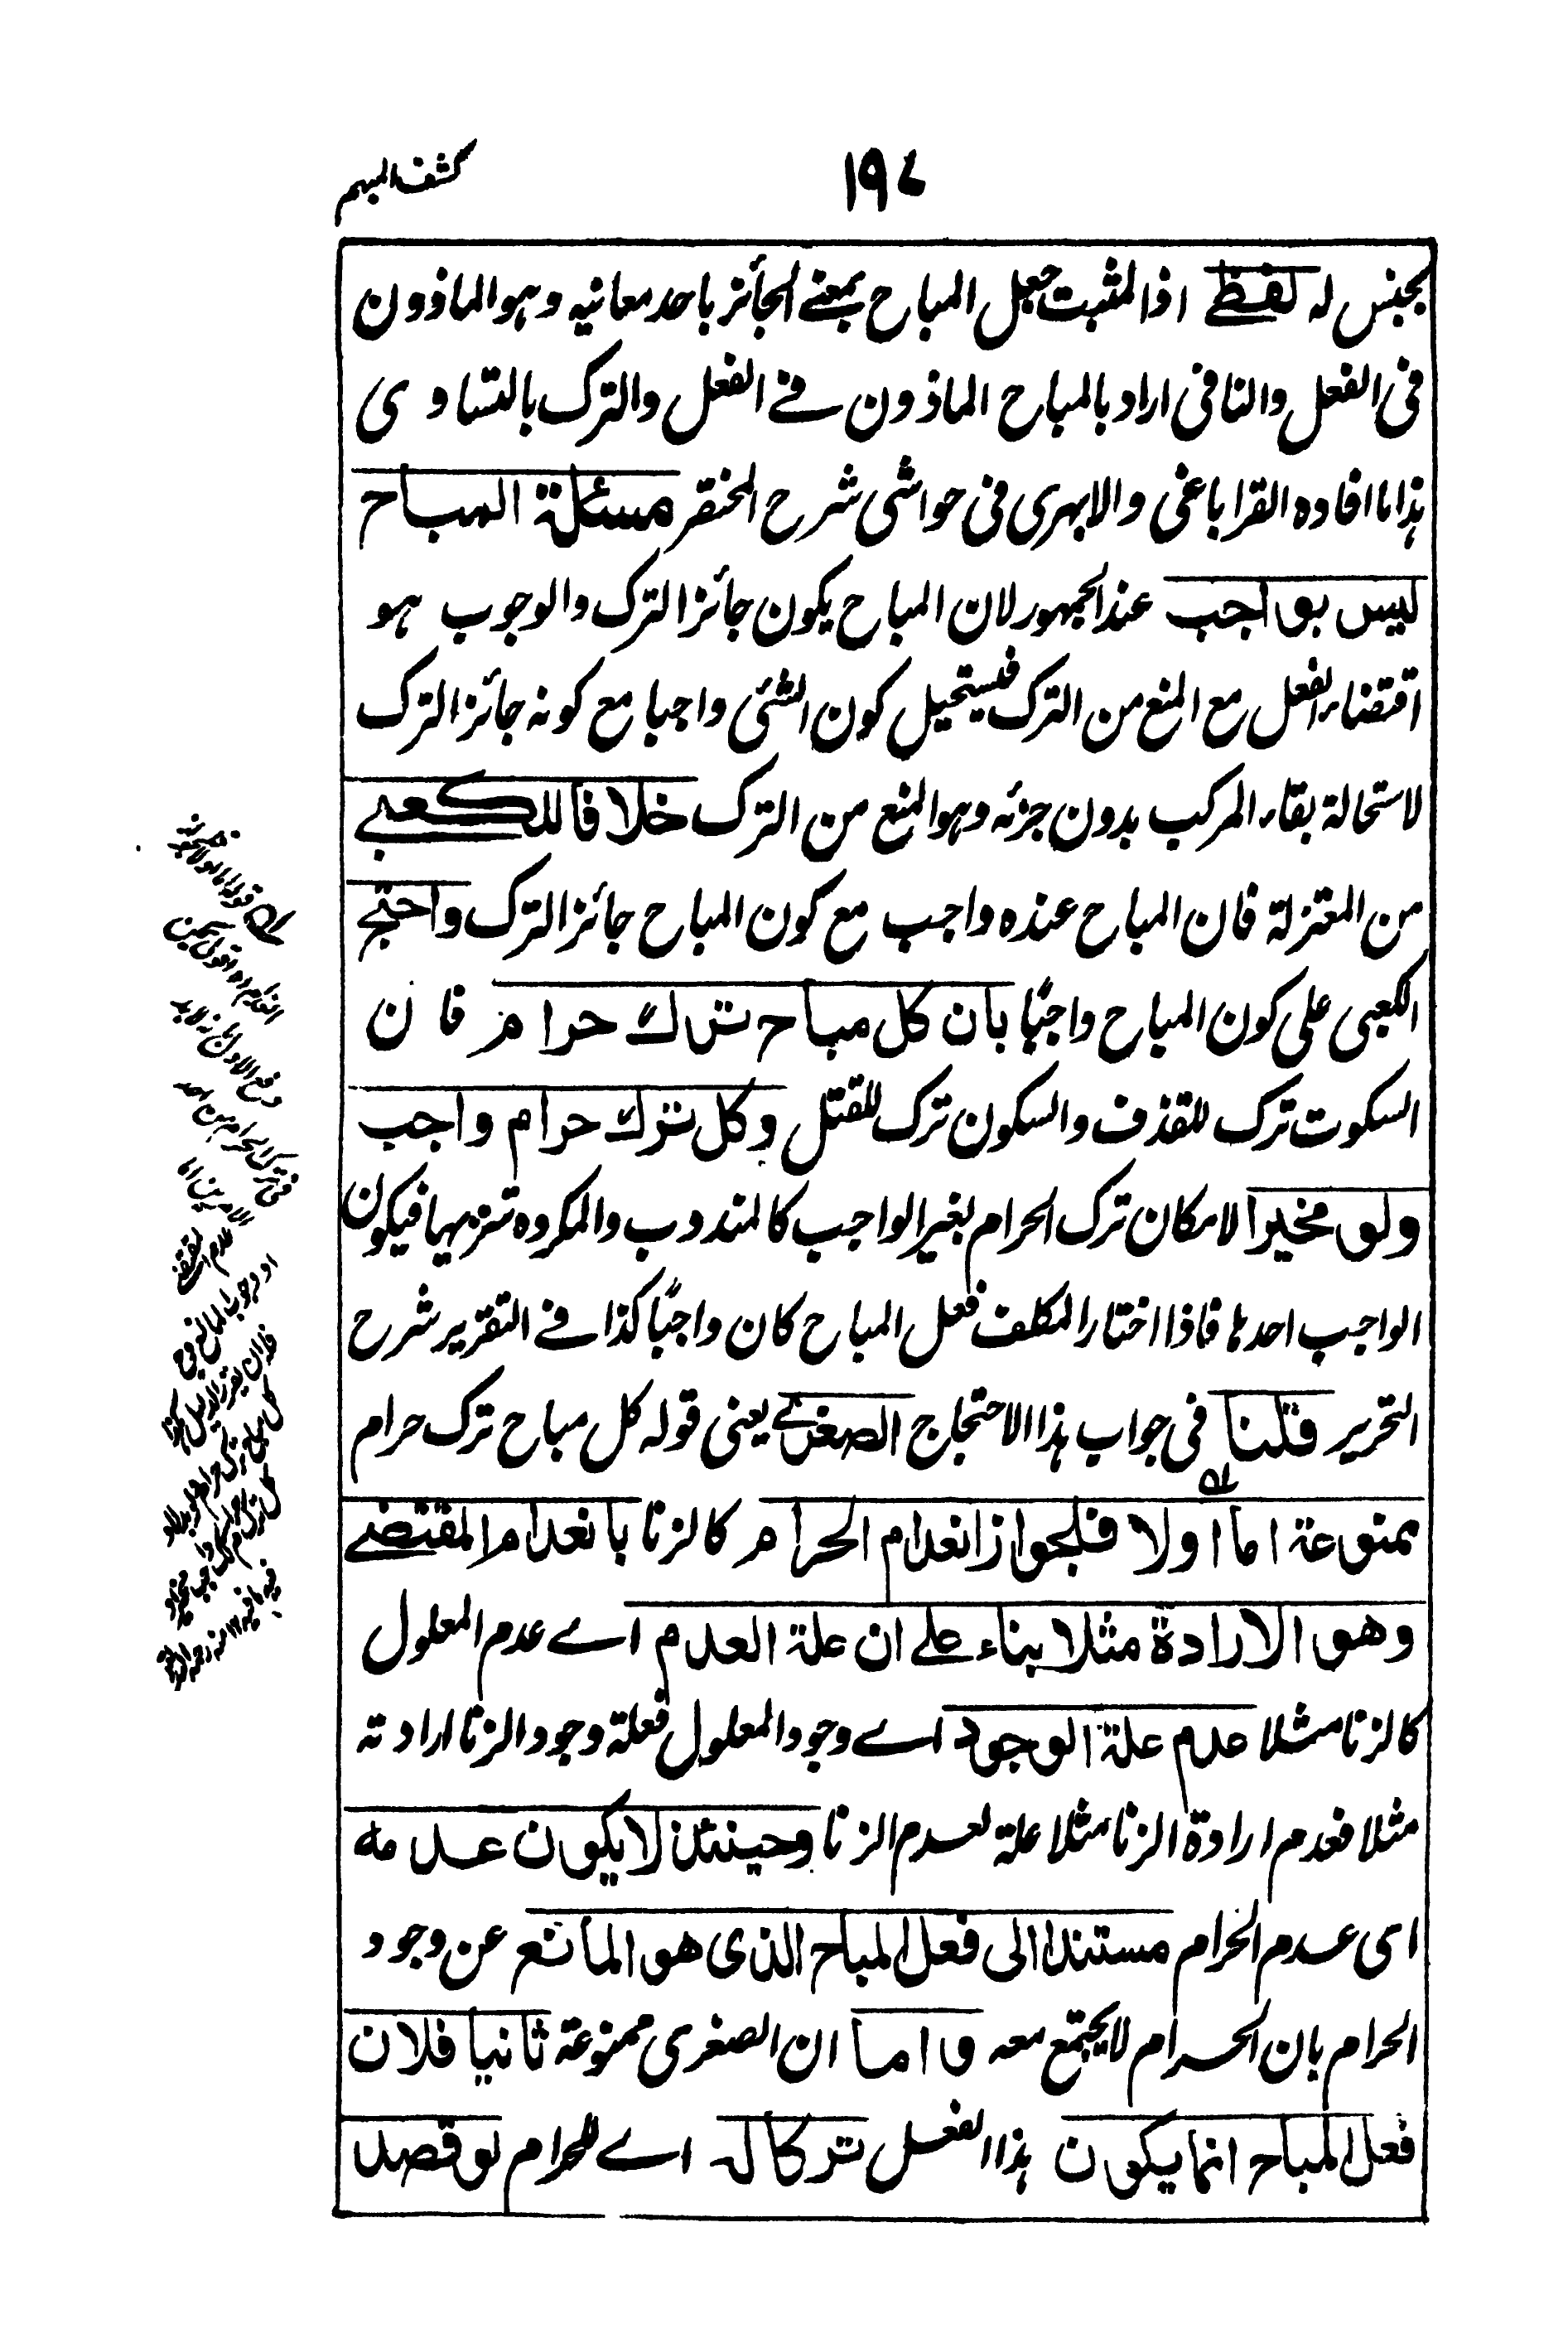 ١٩٧
كشف المبهم
بجنس له لفظي اذ المثبت جعل المباح بمعنے الجأئز باحد معانيه وهو الماذون
فى الفعل والنافى اراد بالمباح الماذون فے الفعل والترك بالتساوى
هذا ما افاده القراباغى والابهرى فى حواشى شرح المختصر مسئلة المباح
ليس بواجب عند الجمهور لان المباح يكون جائز الترك والوجوب هو
اقتضاء الفعل مع المنع من الترك فيستحيل كون الشئى واجبا مع كونه جائز الترك
لاستحالة بقاء المركب بدون جزئه وهو المنع من الترك خلافا للكعبے
من المعتزلة فان المباح عنده واجب مع كون المباح جائز الترك واحتج
الكعبى على كون المباح واجبًا بان كل مباح ترك حرام فان
السكوت ترك للقذف والسكون ترك للقتل وكل ترك حرام واجب
ولو مخيرا لامكان ترك الحرام بغير الواجب كالمندوب والمكروه تنزيهيا فيكون
الواجب احدها فاذا اختار المكلف فعل المباح كان واجبًا كذا فے التقرير شرح
التحرير قلنا فى جواب هذا الاحتجاج الصغرے يعنى قوله كل مباح ترك حرام
ممنوعة اما اولا فلجواز انعدام الحرام كالزنا بانعدام المقتضے
وهو الارادة مثلا بناء علے ان علة العدم اے عدم المعلول
كالزنا مثلا عدم علة الوجود اے وجود المعلول فعلة وجود الزنا ارادته
مثلا فعدم ارادة الزنا مثلا علة لعدم الزنا وحينئذ لا يكون عدمه
اى عدم الحرام مستندا الى فعل المباح الذى هو المانع عن وجود
الحرام بان الحرام لا يجتمع معه واما ان الصغرى ممنوعة ثانيا فلان
فعل المباح انما يكون هذا الفعل تركا له اے للحرام لو قصد